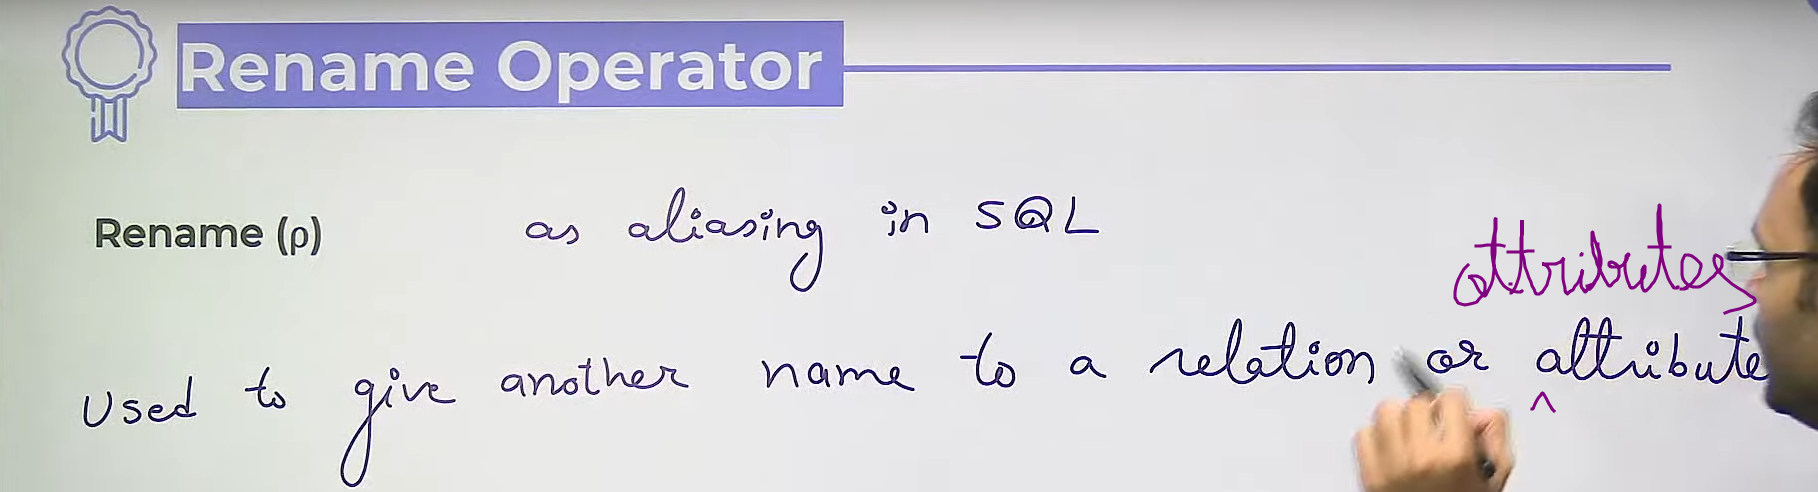 Rename Operator
Rename (ρ) as aliasing in SQL
attributes
Used to give another name to a relation or ^ attribute